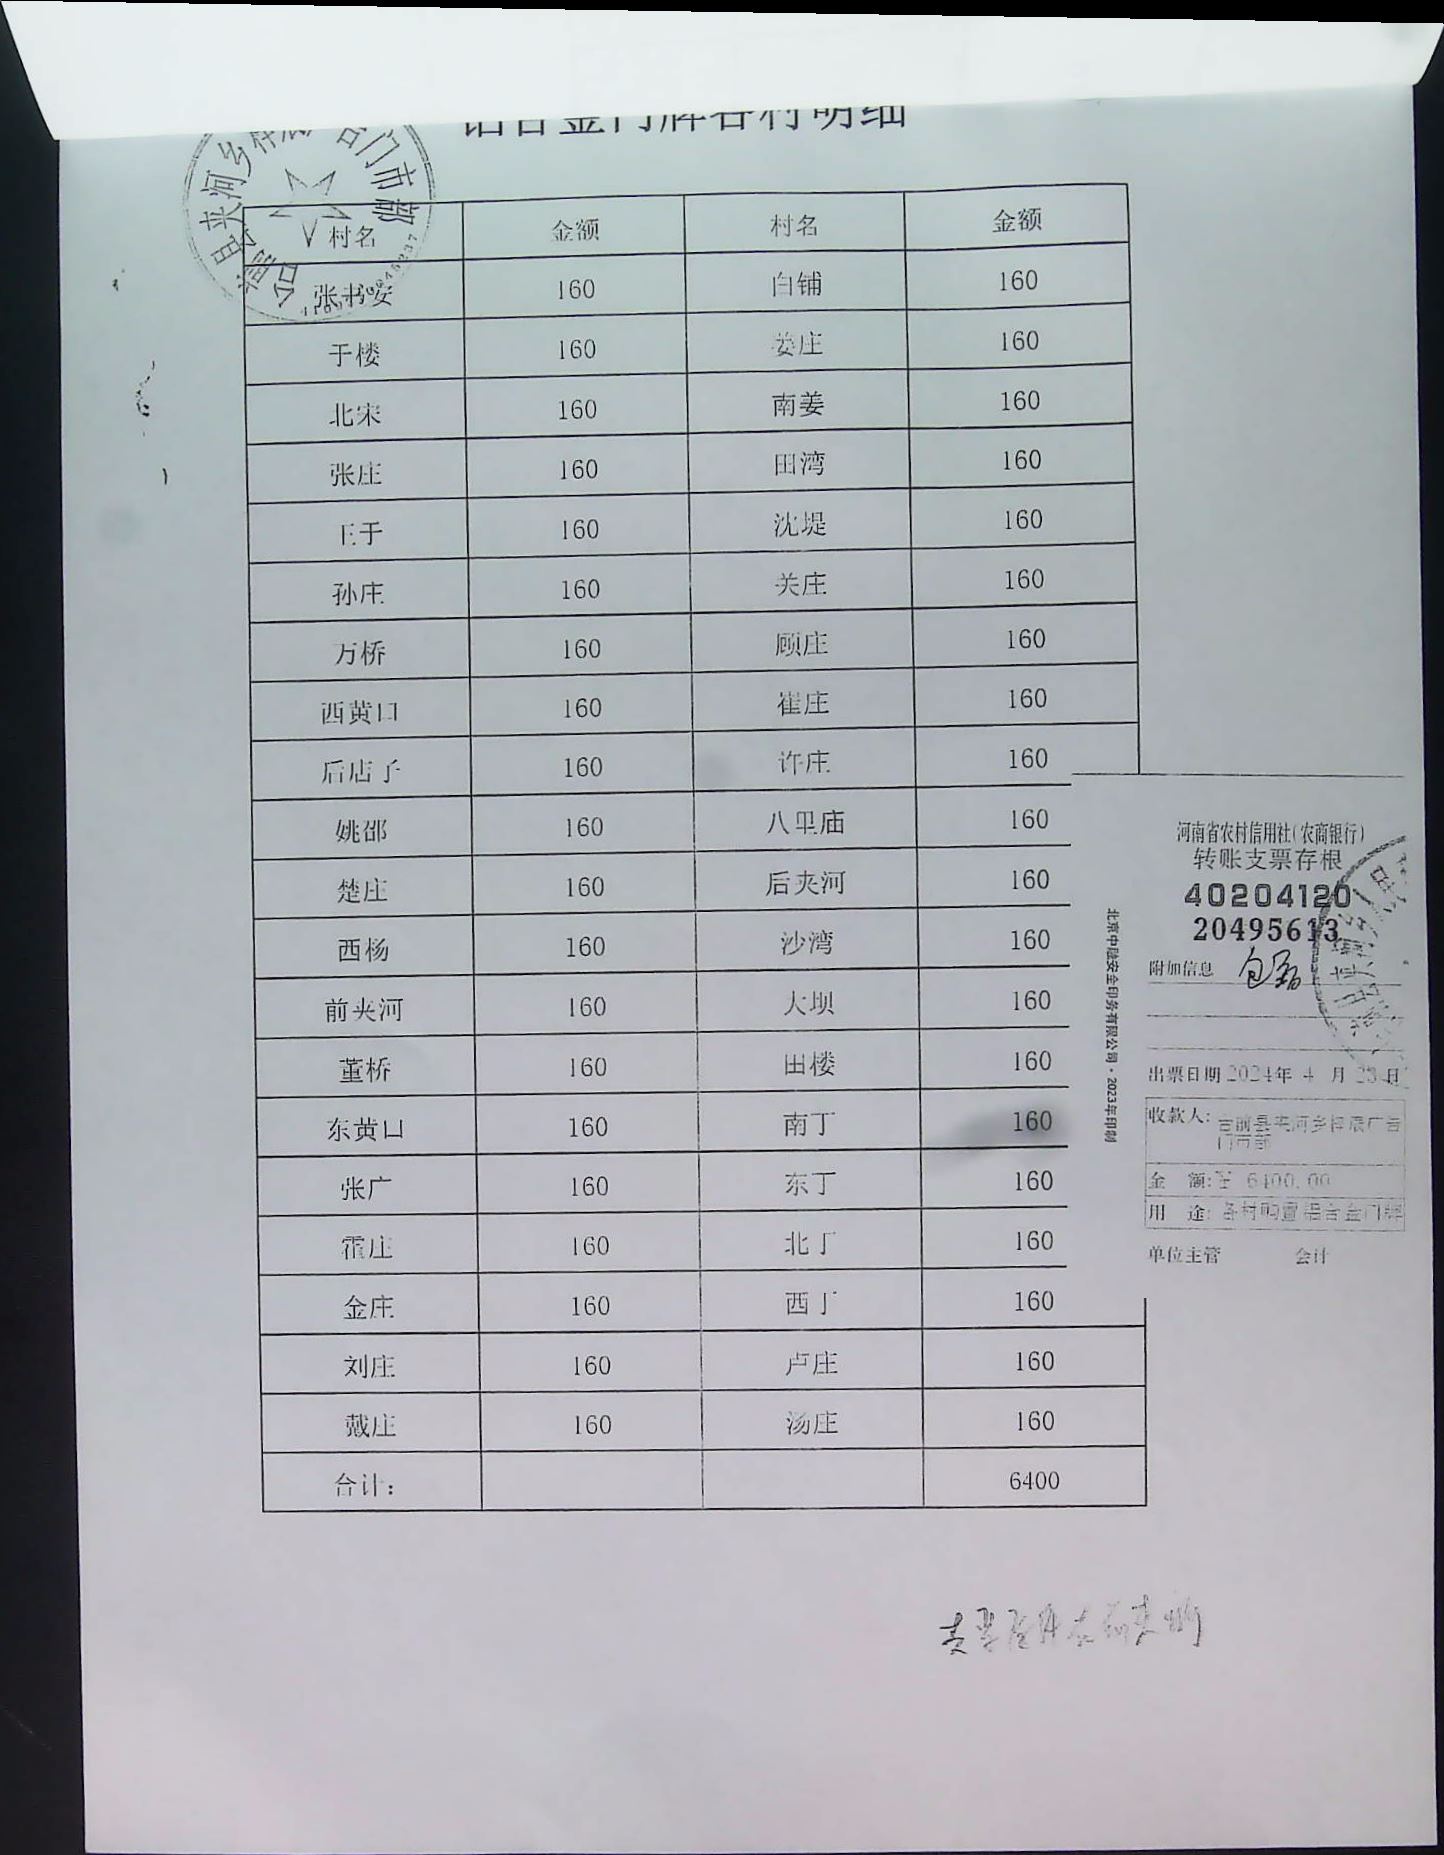 铝合金门牌各村明细
村名 金额 村名 金额
张书安 160 白铺 160
于楼 160 姜庄 160
北宋 160 南姜 160
张庄 160 田湾 160
王于 160 沈堤 160
孙庄 160 关庄 160
万桥 160 顾庄 160
西黄口 160 崔庄 160
后店子 160 许庄 160
姚邵 160 八里庙 160
楚庄 160 后夹河 160
西杨 160 沙湾 160
前夹河 160 大坝 160
董桥 160 田楼 160
东黄口 160 南丁 160
张广 160 东丁 160
霍庄 160 北丁 160
金庄 160 西丁 160
刘庄 160 卢庄 160
戴庄 160 汤庄 160
合计： 6400
河南省农村信用社(农商银行)
转账支票存根
40204120
20495613
附加信息
出票日期 2024年 4 月 23 日
收款人: 台前县夹河乡梓晨广告
门市部
金 额: ￥ 6400.00
用 途: 各村购置铝合金门牌
单位主管 会计
北京中融安全印务有限公司·2023年印制